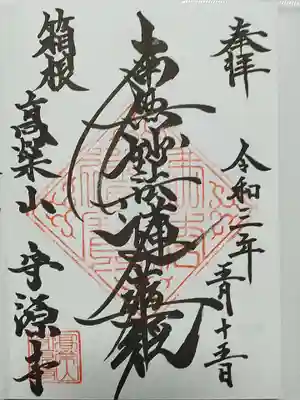 奉拝
令和三年五月十五日
南無妙法蓮華経
箱根
高栄山 守源寺